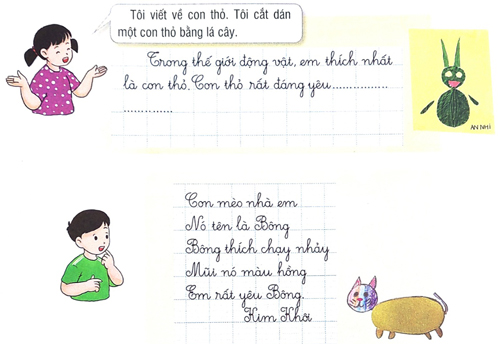 Tôi viết về con thỏ. Tôi cắt dán
một con thỏ bằng lá cây.
Trong thế giới động vật, em thích nhất
là con thỏ. Con thỏ rất đáng yêu................
..............
AN NHI
Con mèo nhà em
Nó tên là Bông
Bông thích chạy nhảy
Mũi nó màu hồng
Em rất yêu Bông.
Kim Khôi